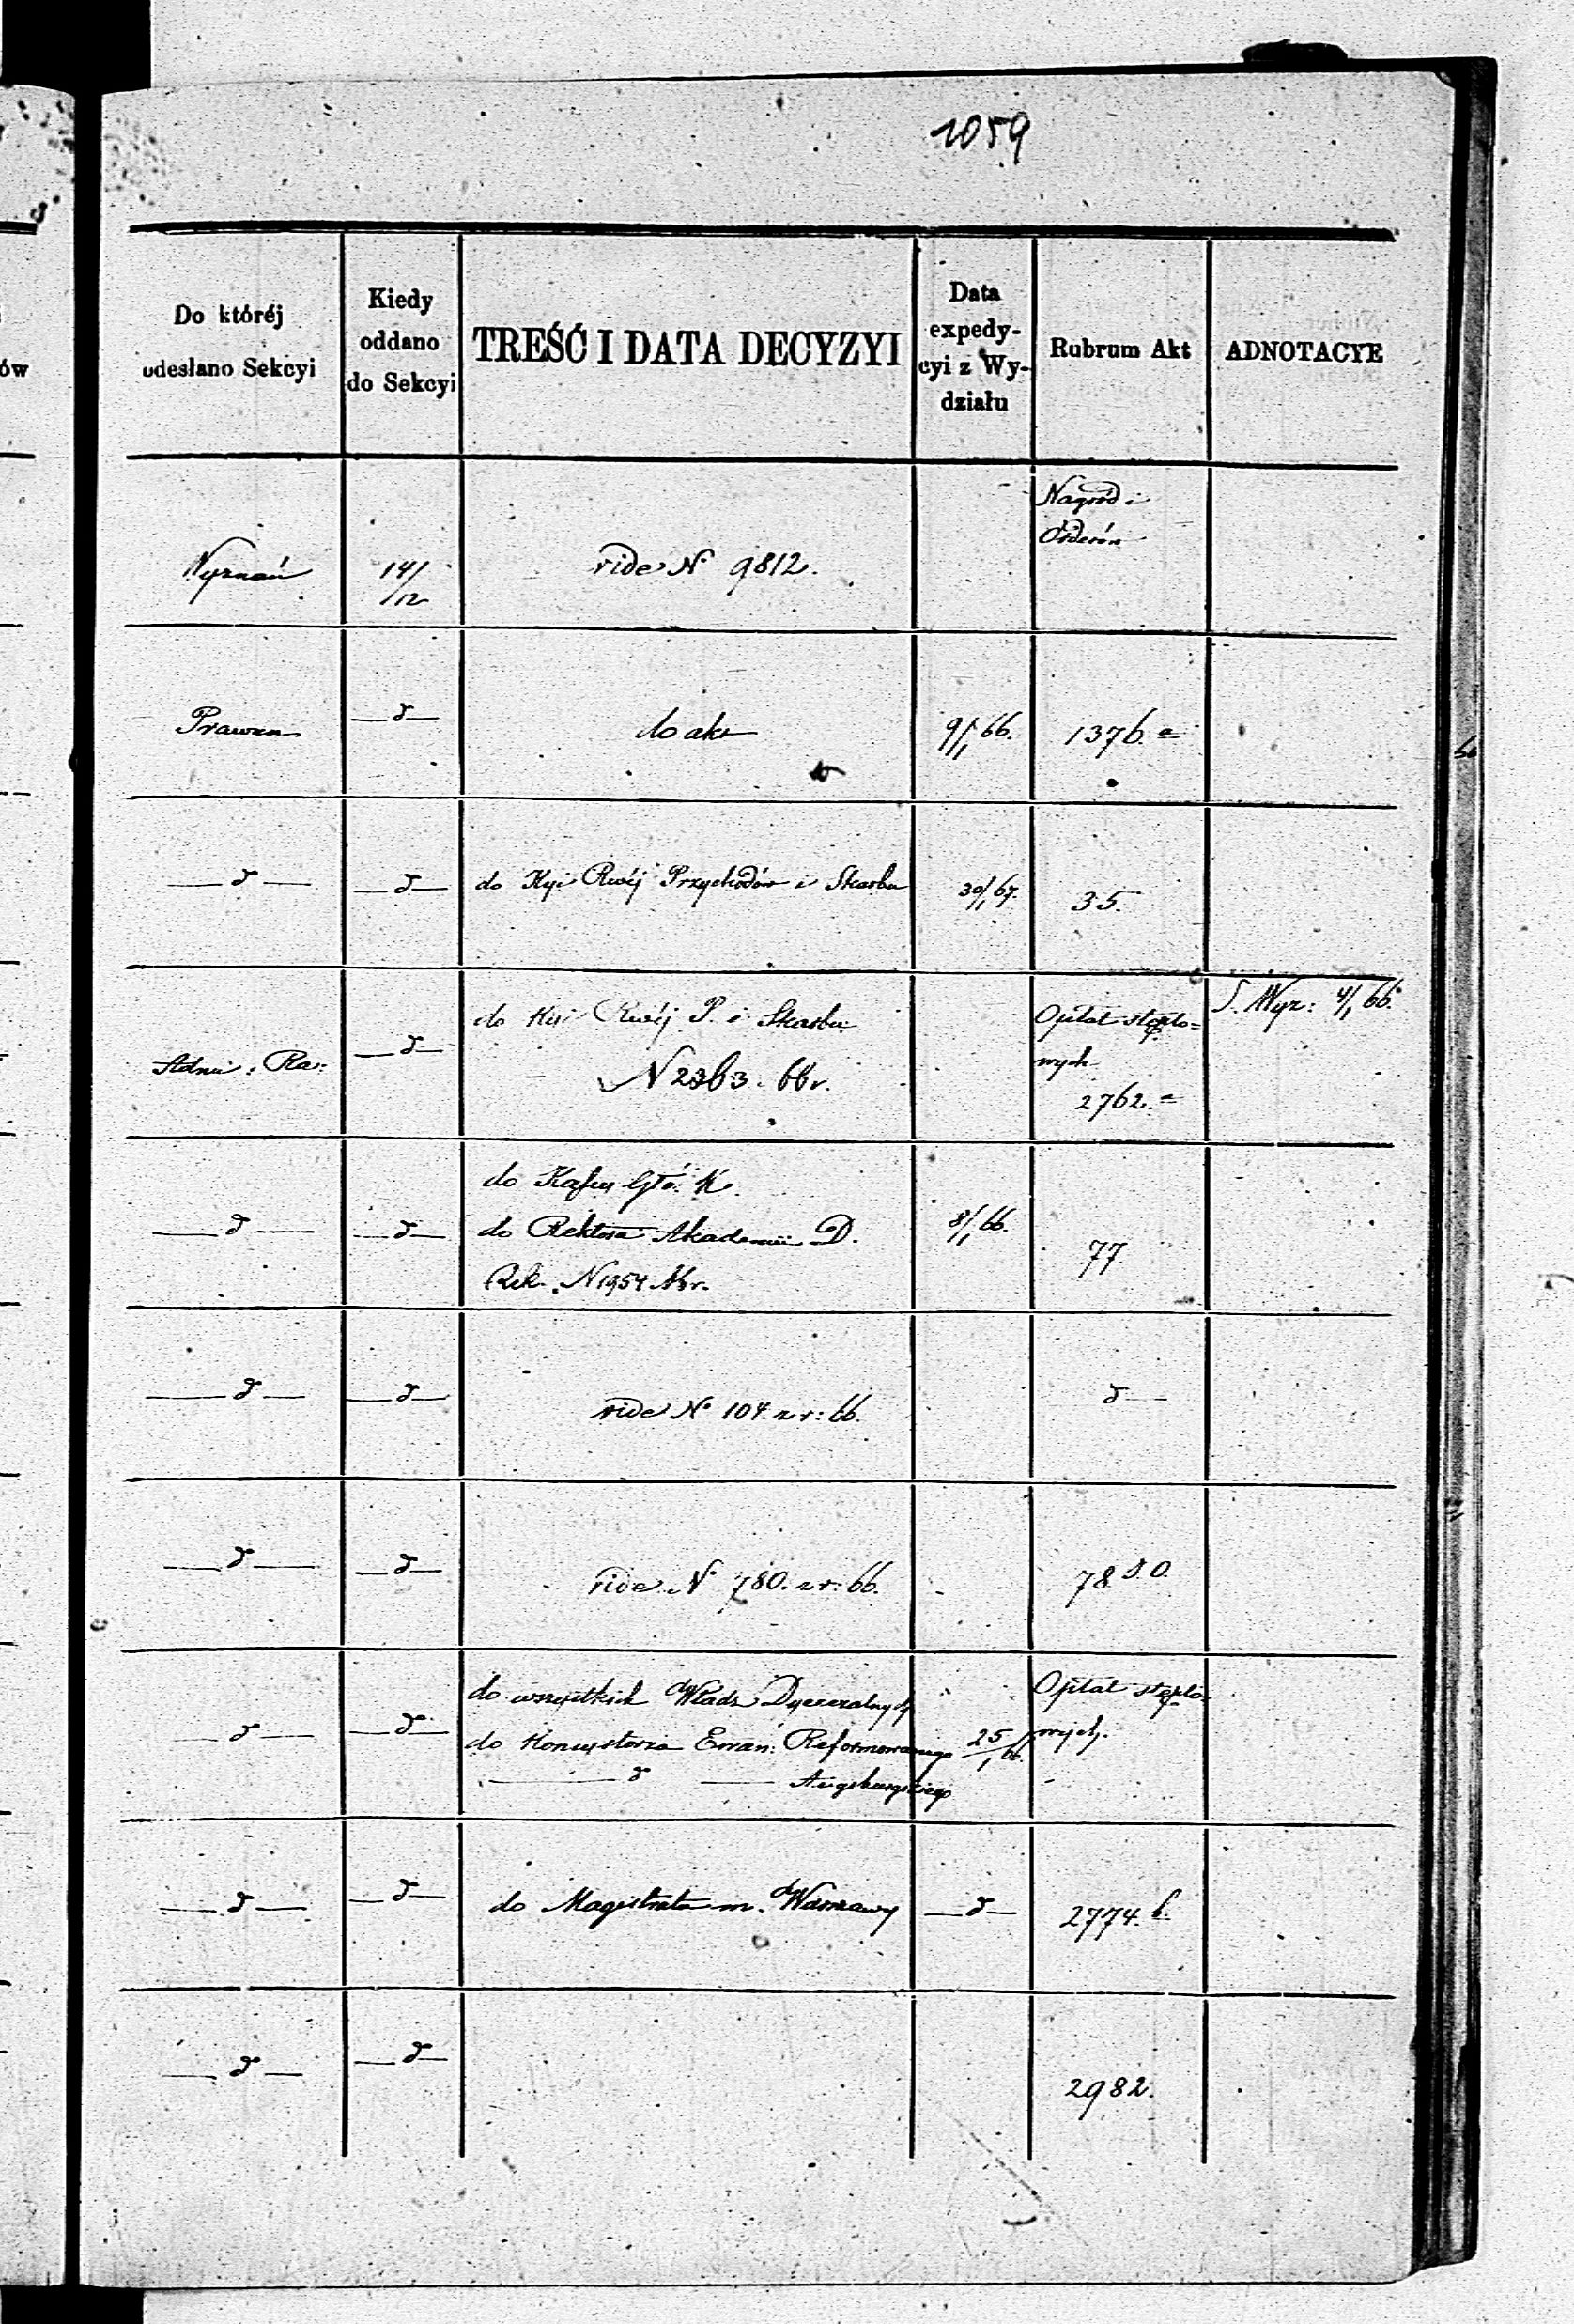 1059
Do któréj
odesłano Sekcyi
Kiedy
oddano
do Sekcyi
TREŚĆ I DATA DECYZYI
Data
expedy-
cyi z Wy-
działu
Rubrum Akt
ADNOTACYE
ów
Wyznań
14/12
vide N 9812.
Nagród i
Orderów
Prawna
—d—
do akt
9/1 66.
1376. a
—d—
—d—
do Kyi Rwéj Przychodów i Skarbu
30/1 67.
35.
Admi: Ra:
—d—
do Kyi Rwéj P. i Skarbu
N 2363. 66 r.
Opłat stęplo=
wych
2762. a
S. Wyz: 4/1 66.
—d—
—d—
do Kassy Głó: K.
do Rektora Akademii D.
Rek. N 1954 66 r.
8/1 66.
77.
—d—
—d—
vide N 104. z r: 66.
d—
—d—
—d—
vide N 780. z r: 66.
78
—d—
—d—
do wszystkich Władz Dyecezalnych
do Konsystorza Ewan: Reformowanego
— d — Augsburgskiego
25/1 66.
Opłat stęplo-
wych.
—d—
—d—
do Magistratu m. Warszawy
—d—
2774. b.
—d—
—d—
2982.